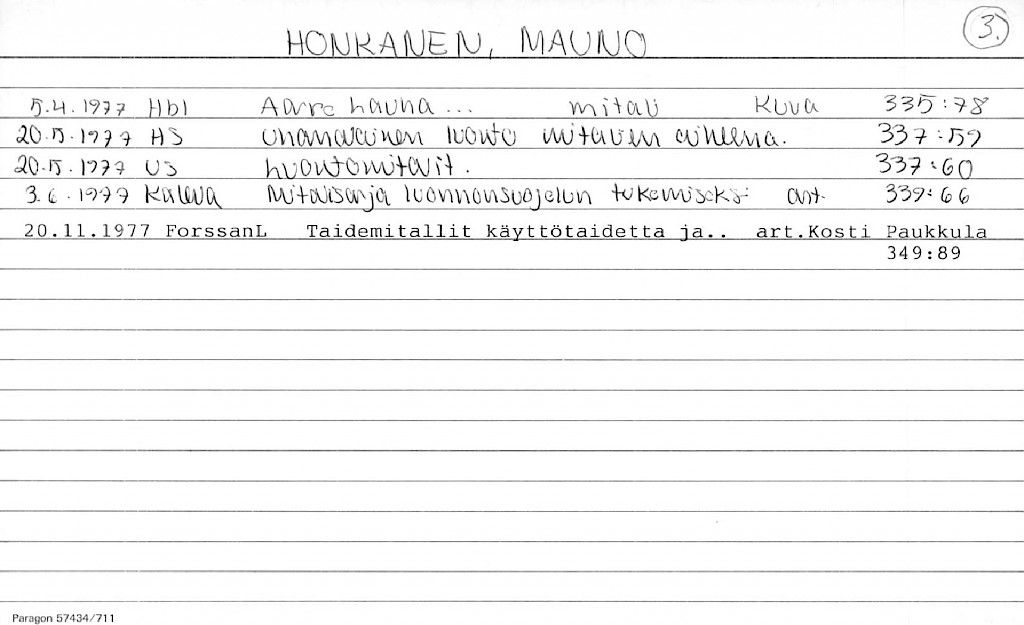 HONKANEN, MAUNO 3.
5.4.1977 Hbl Aarre Lauha... mitali Kuva 335:78
20.5.1977 HS luonto mitalien aiheena. 337:59
20.5.1977 US Luontomitalit. 337:60
3.6.1977 Kaleva Mitalisarja luonnonsuojelun tukemiseksi art. 339:66
20.11.1977 ForssanL Taidemitallit käyttötaidetta ja.. art.Kosti Paukkula
349:89
Paragon 57434/711